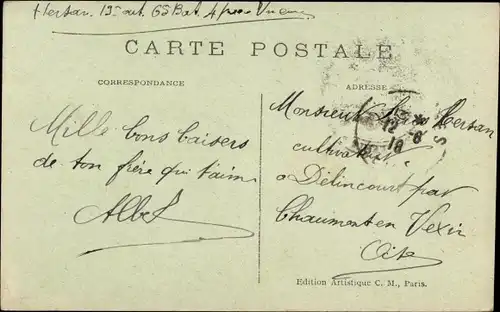 Hersan. 19e art. 68 Bat.
CARTE POSTALE
CORRESPONDANCE
ADRESSE
Mille bons baisers
de ton frère qui t'aime
Albert
Monsieur Hersan
cultivateur
a Délincourt par
Chaumont en Vexin
Oise
12 -8
16
Edition Artistique C. M., Paris.